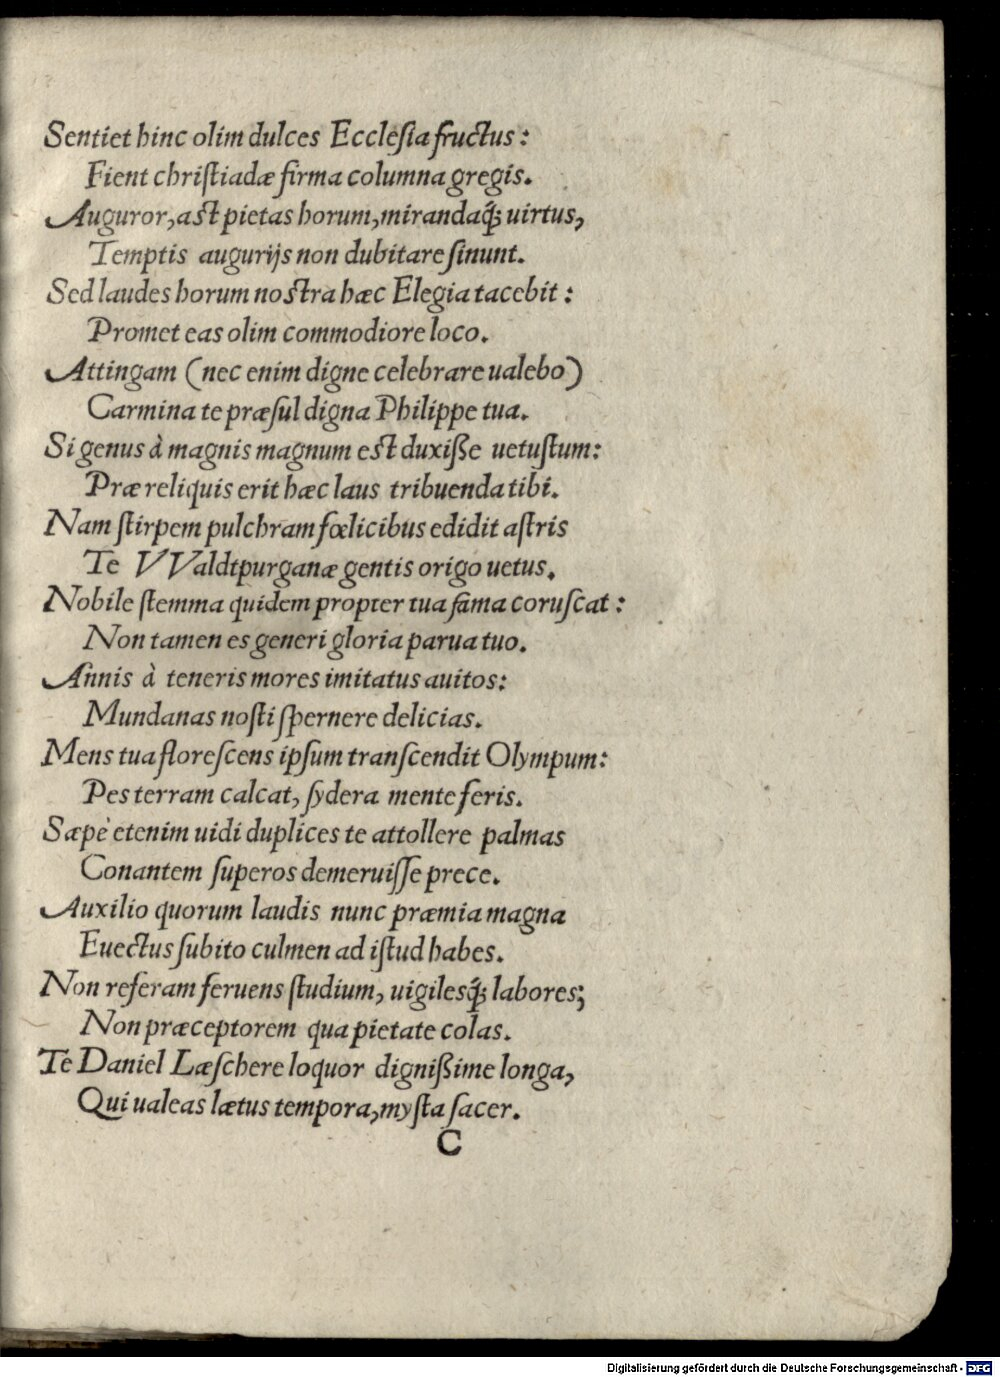 Sentiet hinc olim dulces Ecclesia fructus:
Fient christiadæ firma columna gregis.
Auguror, ast pietas horum, mirandaq́; uirtus,
Temptis augurijs non dubitare sinunt.
Sed laudes horum nostra hæc Elegia tacebit:
Promet eas olim commodiore loco.
Attingam (nec enim digne celebrare ualebo)
Carmina te præsul digna Philippe tua.
Si genus à magnis magnum est duxiße uetustum:
Præ reliquis erit hæc laus tribuenda tibi.
Nam stirpem pulchram fœlicibus edidit astris
Te VValdtpurganæ gentis origo uetus.
Nobile stemma quidem propter tua fama coruscat:
Non tamen es generi gloria parua tuo.
Annis à teneris mores imitatus auitos:
Mundanas nosti spernere delicias.
Mens tua florescens ipsum transcendit Olympum:
Pes terram calcat, sydera mente feris.
Sæpè etenim uidi duplices te attollere palmas
Conantem superos demeruisse prece.
Auxilio quorum laudis nunc præmia magna
Euectus subito culmen ad istud habes.
Non referam feruens studium, uigilesq́; labores;
Non præceptorem qua pietate colas.
Te Daniel Læschere loquor dignißime longa,
Qui ualeas lætus tempora, mysta sacer.
C
Digitalisierung gefördert durch die Deutsche Forschungsgemeinschaft - DFG